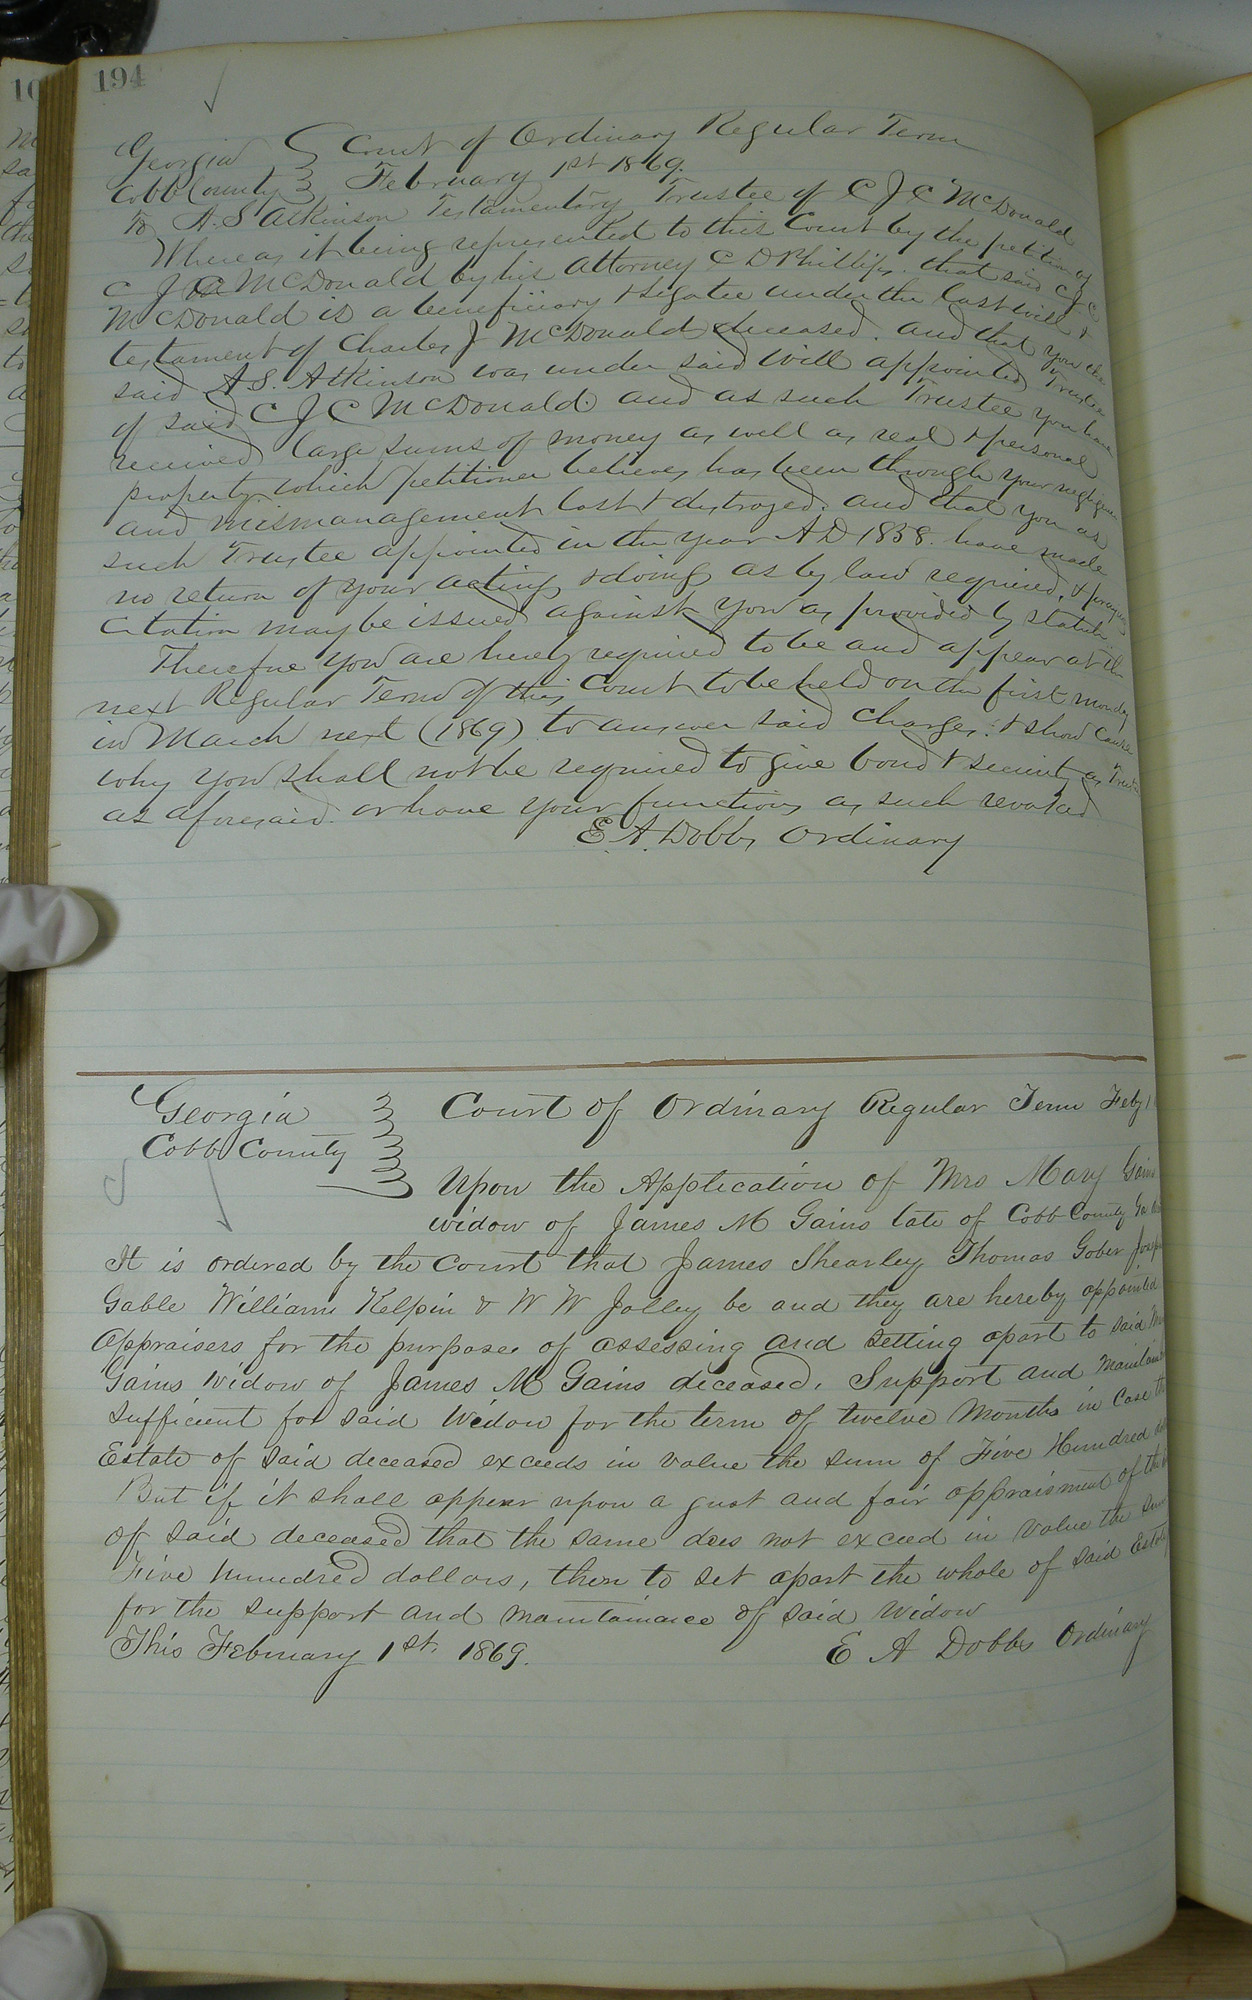 194
Georgia } Court of Ordinary Regular Term
Cobb County } February 1st 1869.
To A. S Atkinson Testamentary Trustee of C J C McDonald
Whereas it being represented to this Court by the petition of
C J C McDonald by his attorney C D Phillips. that said C J C
McDonald is a beneficiary & legatee under the last will &
testament of Charles J McDonald deceased. and that you the
said A. S. Atkinson was under said will appointed Trustee
of said C J C McDonald and as such Trustee you have
received large sums of money as well as real & personal
property which petitioner believes has been through your negligence
and mismanagement lost & destroyed. and that you as
such Trustee appointed in the year A D 1858. have made
no return of your actings & doings as by law required, & prays
citation may be issued against you as provided by statute
Therefore you are hereby required to be and appear at the
next Regular Term of this Court to be held on the first monday
in March next (1869) to answer said charges: & show cause
why you shall not be required to give bond & security as Trustee
as aforesaid. or have your functions as such revoked
E. A. Dobbs Ordinary
Georgia } Court of Ordinary Regular Term Feby 1
Cobb County
Upon the Application of Mrs Mary Gains
widow of James M Gains late of Cobb County Ga
It is ordered by the Court that James Shearley Thomas Gober Joseph
Gable William Kelpin & W W Jolley be and they are hereby appointed
Appraisers for the purpose of assessing and setting apart to said Mrs
Gains widow of James M Gains deceased. Support and
sufficient for said Widow for the term of twelve Months in Case the
Estate of said deceased exceeds in value the sum of Five Hundred
But if it shall appear upon a just and fair appraisment of the
of said deceased that the same does not exceed in value the sum
Five hundred dollars, then to set apart the whole of said Estate
for the support and maintainance of said widow
This February 1st 1869. E A Dobbs Ordinary